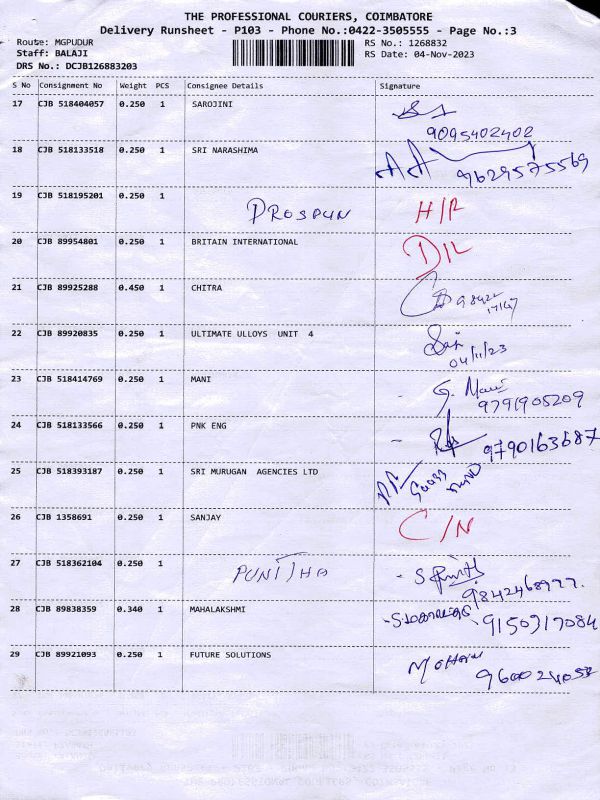 THE PROFESSIONAL COURIERS, COIMBATORE
Delivery Runsheet - P103 - Phone No.:0422-3505555 - Page No.:3
Route: MGPUDUR RS No.: 1268832
Staff: BALAJI RS Date: 04-Nov-2023
DRS No.: DCJB126883203
S No Consignment No Weight PCS Consignee Details Signature
17 CJB 518404057 0.250 1 SAROJINI
9095402402
18 CJB 518133518 0.250 1 SRI NARASHIMA
9629575569
19 CJB 518195201 0.250 1 PROSPUN H/R
20 CJB 89954801 0.250 1 BRITAIN INTERNATIONAL D/L
21 CJB 89925288 0.450 1 CHITRA
22 CJB 89920835 0.250 1 ULTIMATE ULLOYS UNIT 4
04/11/23
23 CJB 518414769 0.250 1 MANI G. Mani
9791905209
24 CJB 518133566 0.250 1 PNK ENG
9790163687
25 CJB 518393187 0.250 1 SRI MURUGAN AGENCIES LTD
26 CJB 1358691 0.250 1 SANJAY C/N
27 CJB 518362104 0.250 1 PUNITHA
9842468977.
28 CJB 89838359 0.340 1 MAHALAKSHMI
9150317084
29 CJB 89921093 0.250 1 FUTURE SOLUTIONS MOHAN